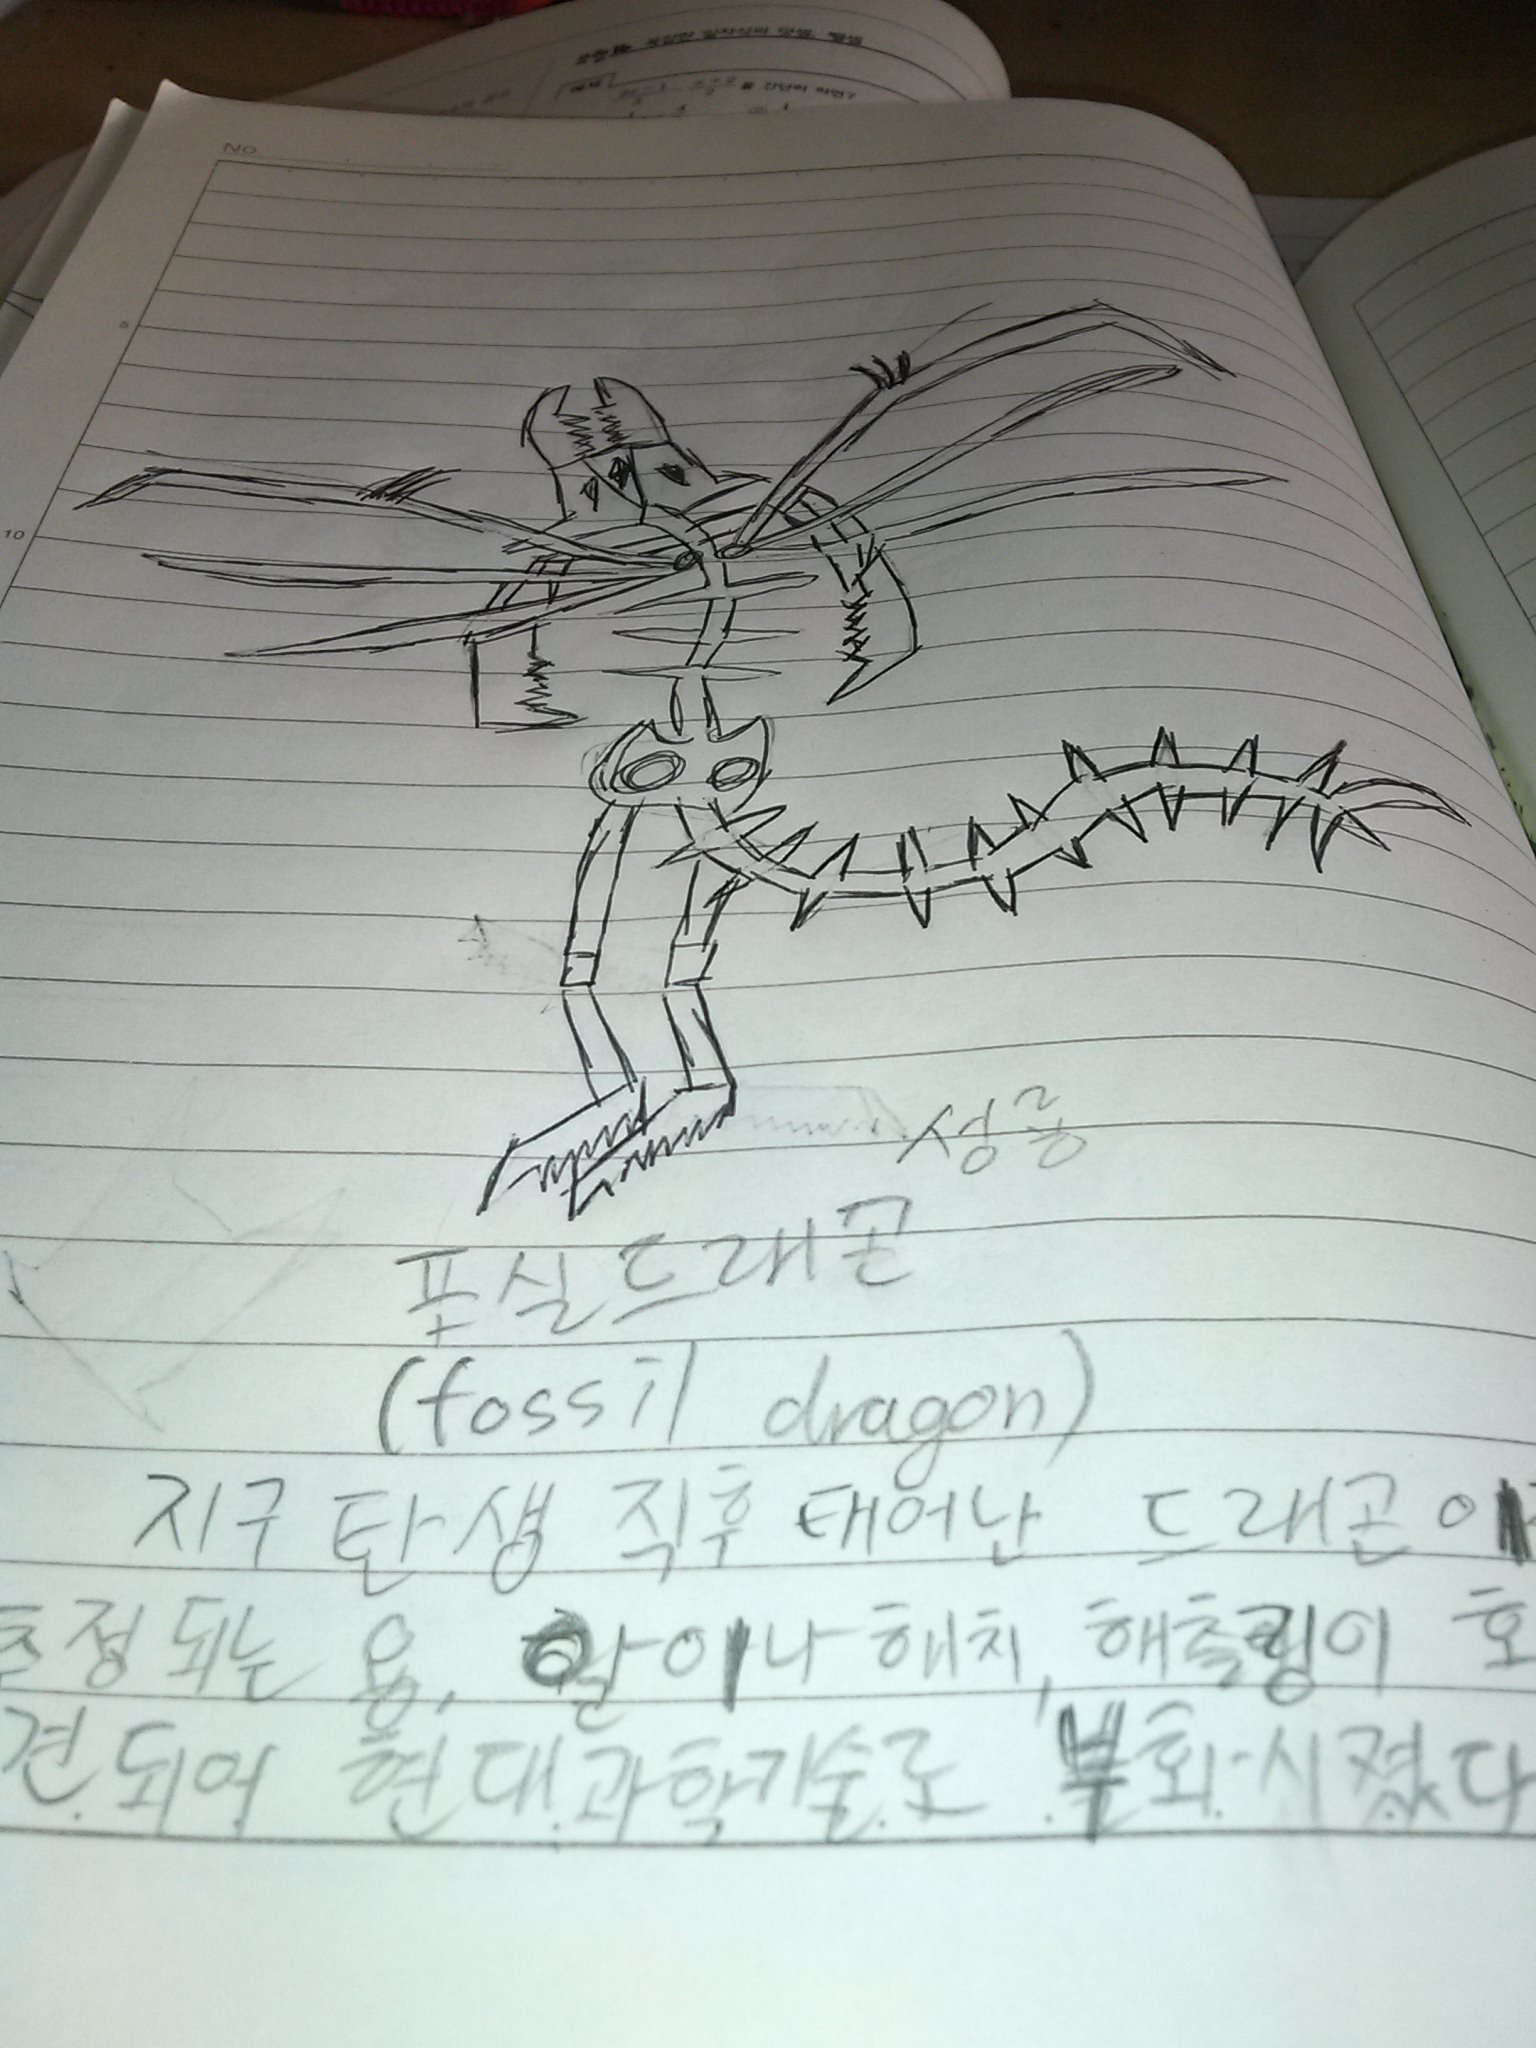 NO.
5
10
성룡
포실드래곤
(fossil dragon)
지구 탄생 직후 태어난 드래곤이
추정되는 용, 알이나 해치, 해츨링이
견되어 현대과학기술로 부회시켰다